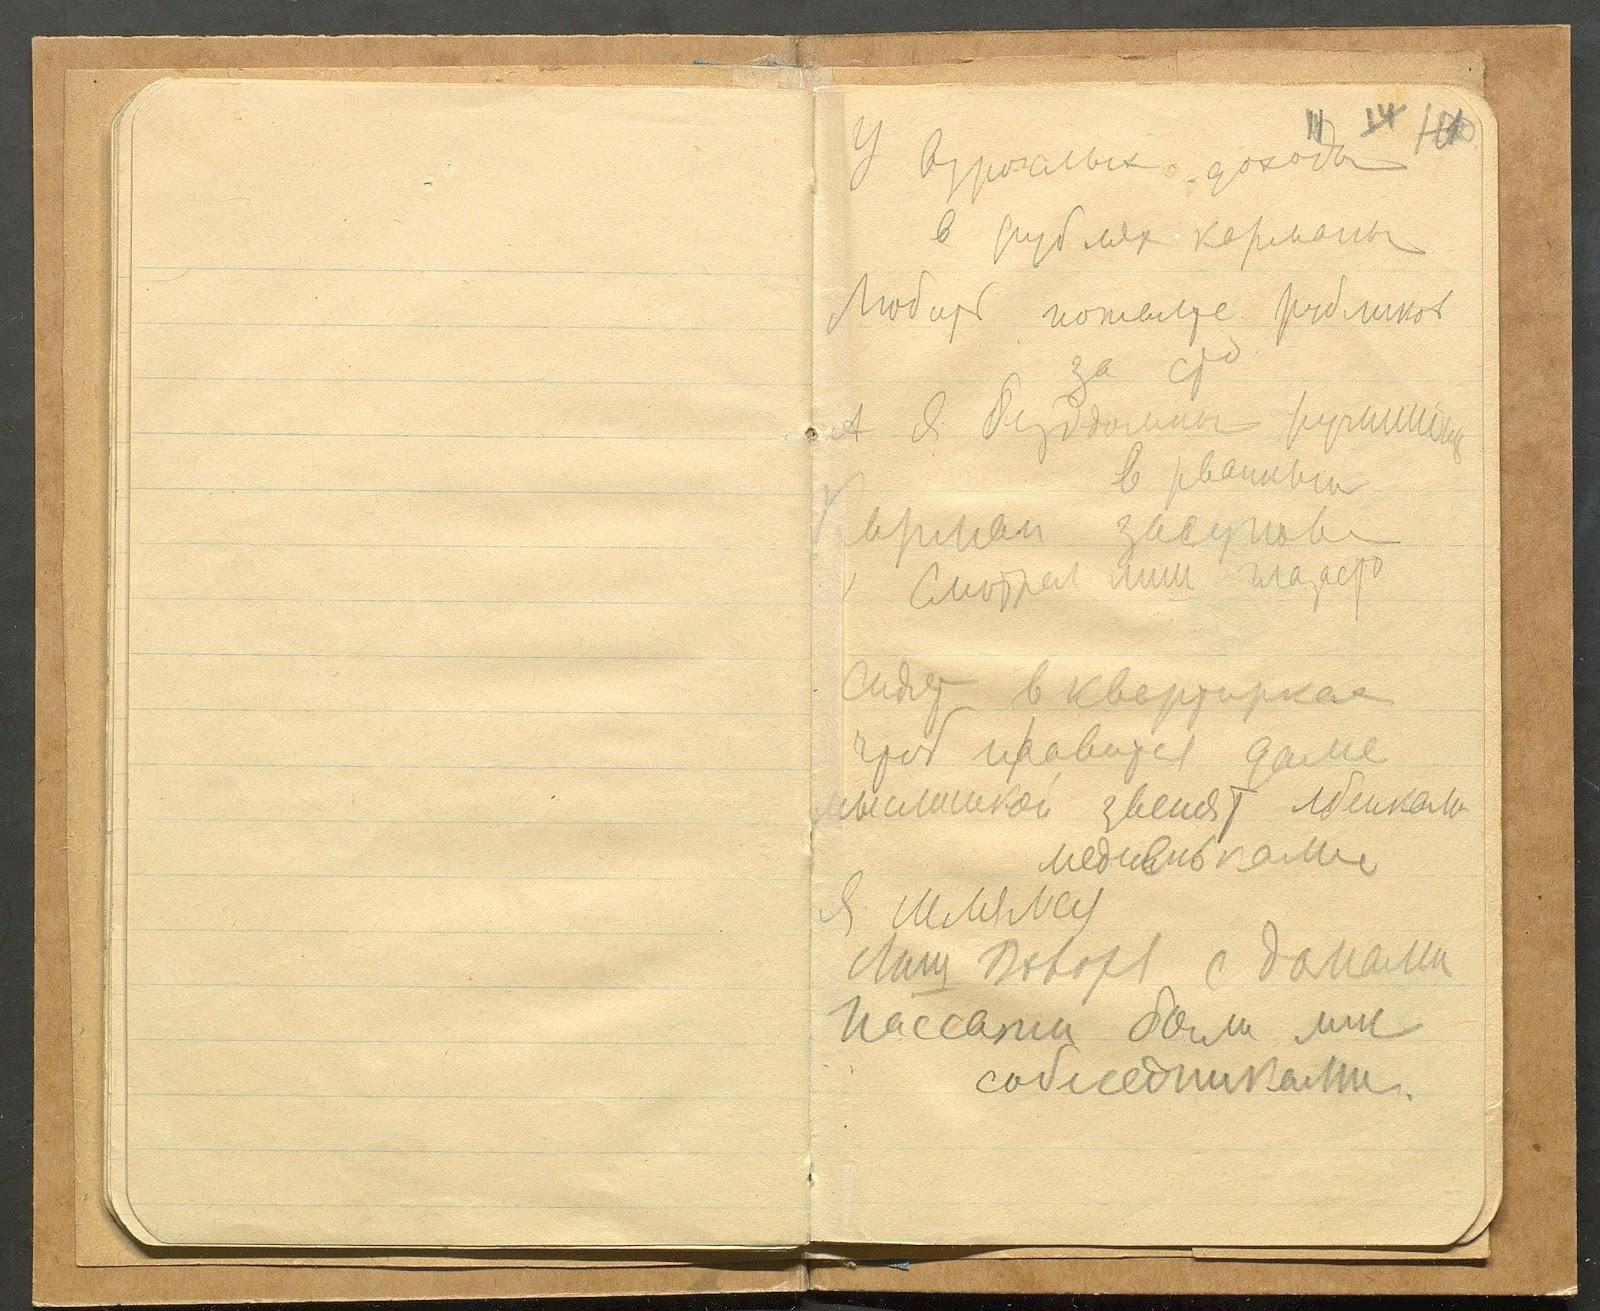 У взрослых доходы
в рублях карманы
Любить пожалуйте рубликов
за сто
А я бездомный ручищи
в рваный
карман засунов
смотрел лиш глазасто
Сидят в квартирках
чтоб нравится даме
мыслишкой звенят лбенками
медненьками
Я шлялся
Лиш говоря с домами
Пассажи были мне
собеседниками.